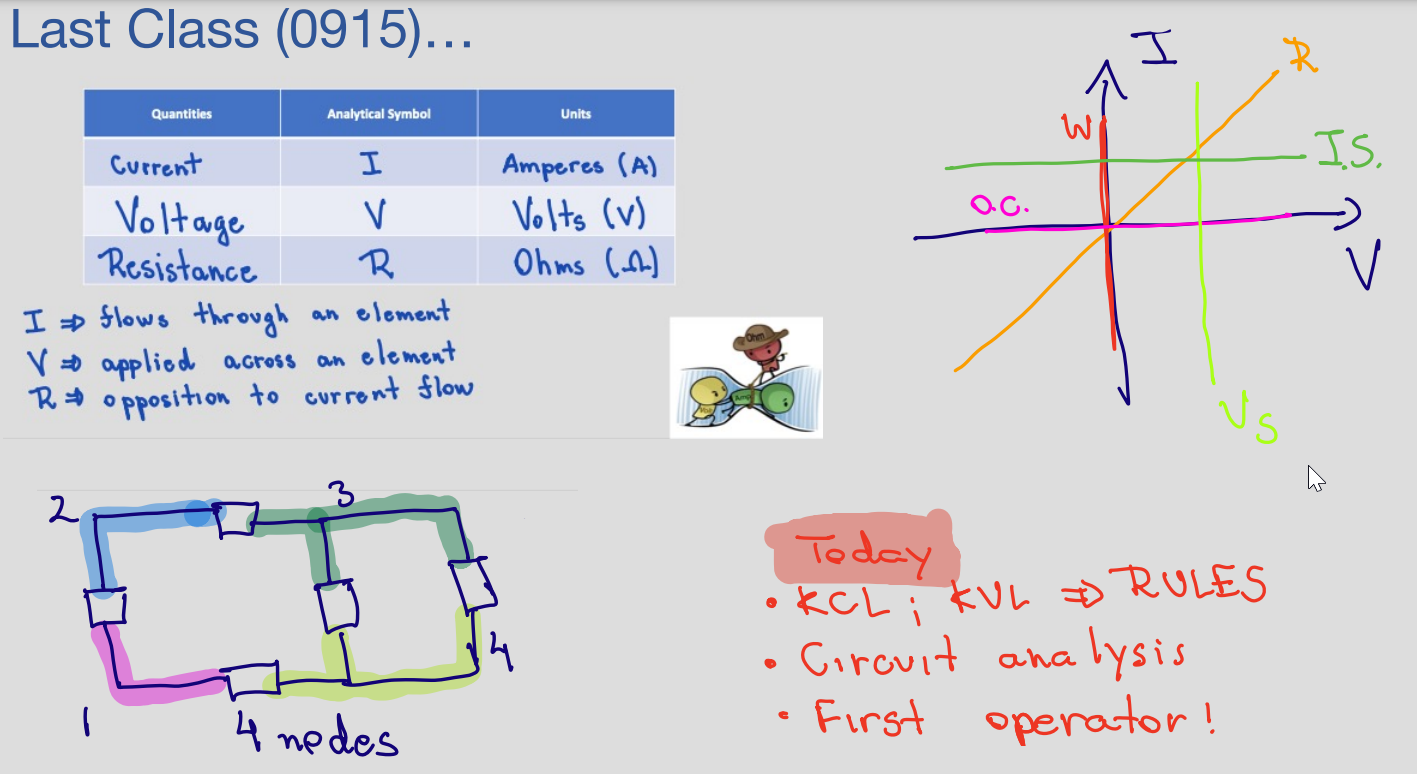 Last Class (0915)...
Quantities Analytical Symbol Units
Current I Amperes (A)
Voltage V Volts (V)
Resistance R Ohms (Ω)
I ⇒ flows through an element
V ⇒ applied across an element
R ⇒ opposition to current flow
Ohm
Volt
Amp
I
R
W
I.S.
O.C.
V
VS
2
3
4
1
4 nodes
Today
• KCL ; KVL ⇒ RULES
• Circuit analysis
• First operator!